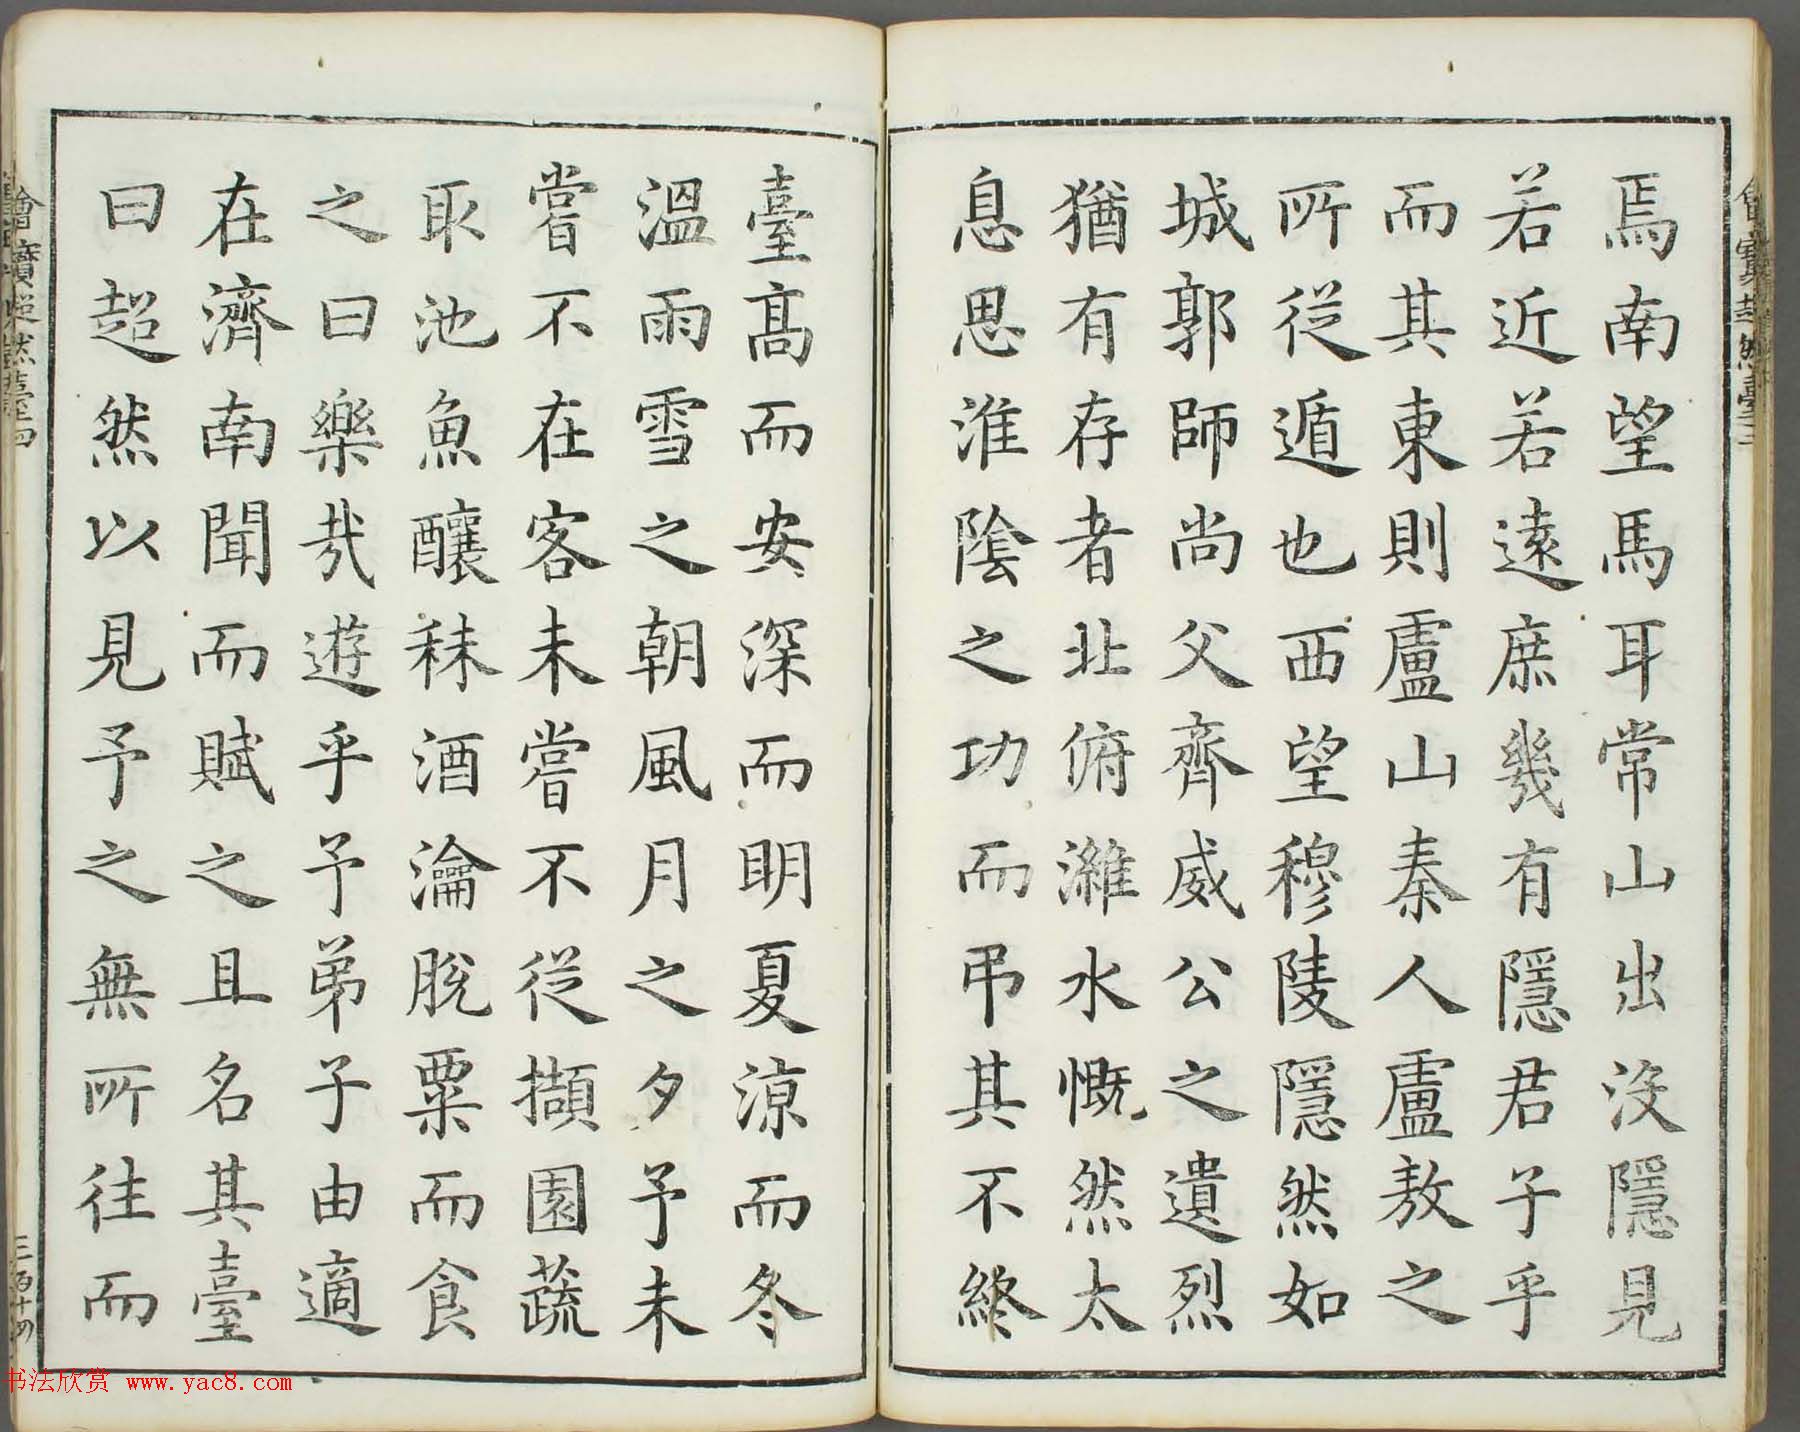 焉南望馬耳常山出没隱見
若近若遠庶幾有隱君子乎
而其東則盧山秦人盧敖之
所從遁也西望穆陵隱然如
城郭師尚父齊威公之遺烈
猶有存者北俯濰水慨然太
息思淮陰之功而弔其不終
臺高而安深而明夏涼而冬
溫雨雪之朝風月之夕予未
嘗不在客未嘗不從擷園蔬
取池魚釀秫酒瀹脫粟而食
之曰樂哉遊乎予弟子由適
在濟南聞而賦之且名其臺
曰超然以見予之無所往而
书法欣赏 www.yac8.com